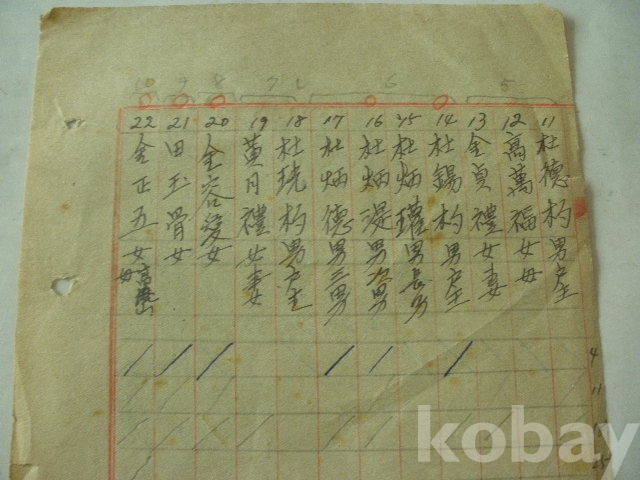 10 9 8 7 6 5
11 杜德杓 男 户主
12 高萬福 女 母
13 金貞禮 女 妻
14 杜錫杓 男 户主
15 杜炳瓘 男 長男
16 杜炳湜 男 次男
17 杜炳德 男 三男
18 杜珖杓 男 户主
19 黄月禮 女 妻
20 金容愛 女
21 田玉骨 女
22 金正五 女 母
4
11
kobay